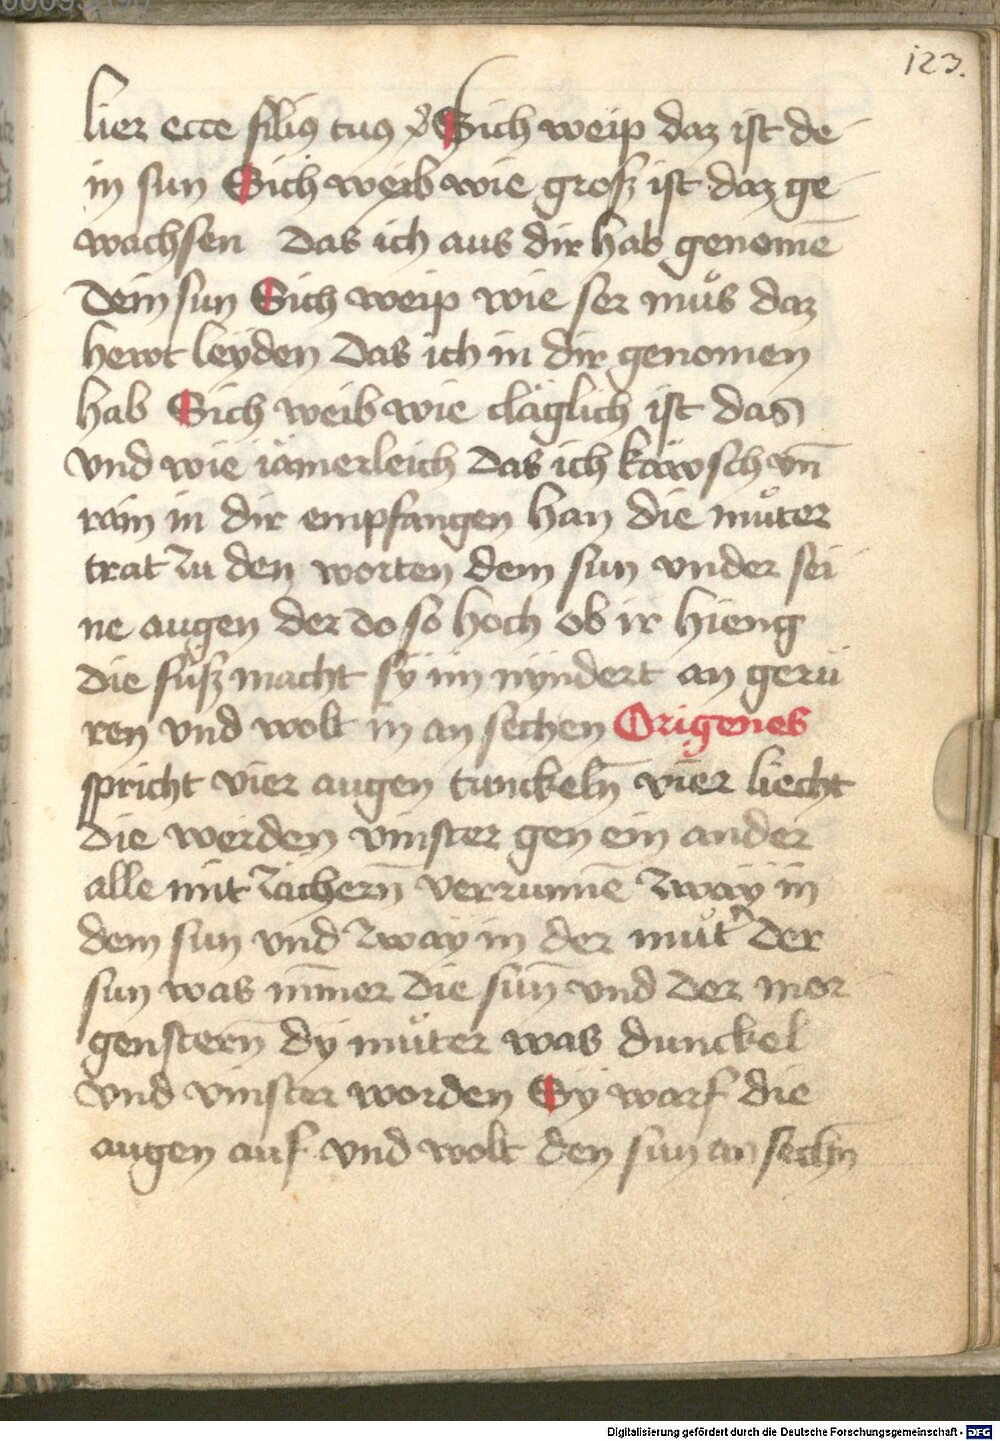 123.
lier ecce filiꝯ tuꝯ Sich weip daz ist de
in sun Sich weib wie groß ist daz ge
wachsen Das ich aus dir hab genomē
Dein sun Sich weip wie ser muͦs daz
hewt leyden Das ich in dir genomen
hab Sich weib wie cläglich ist das
vnd wie iämerleich Das ich käwsch vn̄
rain in dir empfangen han die muͦter
trat zu den worten dem sun vnder sei
ne augen der do so hoch ob ir hieng
die füß macht sy im nyndert an gerü
ren vnd wolt in an sechen Origenes
spricht vier augen tunckeln̄ vier liecht
die werden vinster gen ein ander
alle mit zächern̄ verrunnē zway in
dem sun vnd zway in der muͦt̾ der
sun was īmer die sūn vnd der mor
genstern̄ dy muͦter was dunckel
vnd vinster worden Sy warf die
augen auf vnd wolt den sun an sechn̄
Digitalisierung gefördert durch die Deutsche Forschungsgemeinschaft - DFG